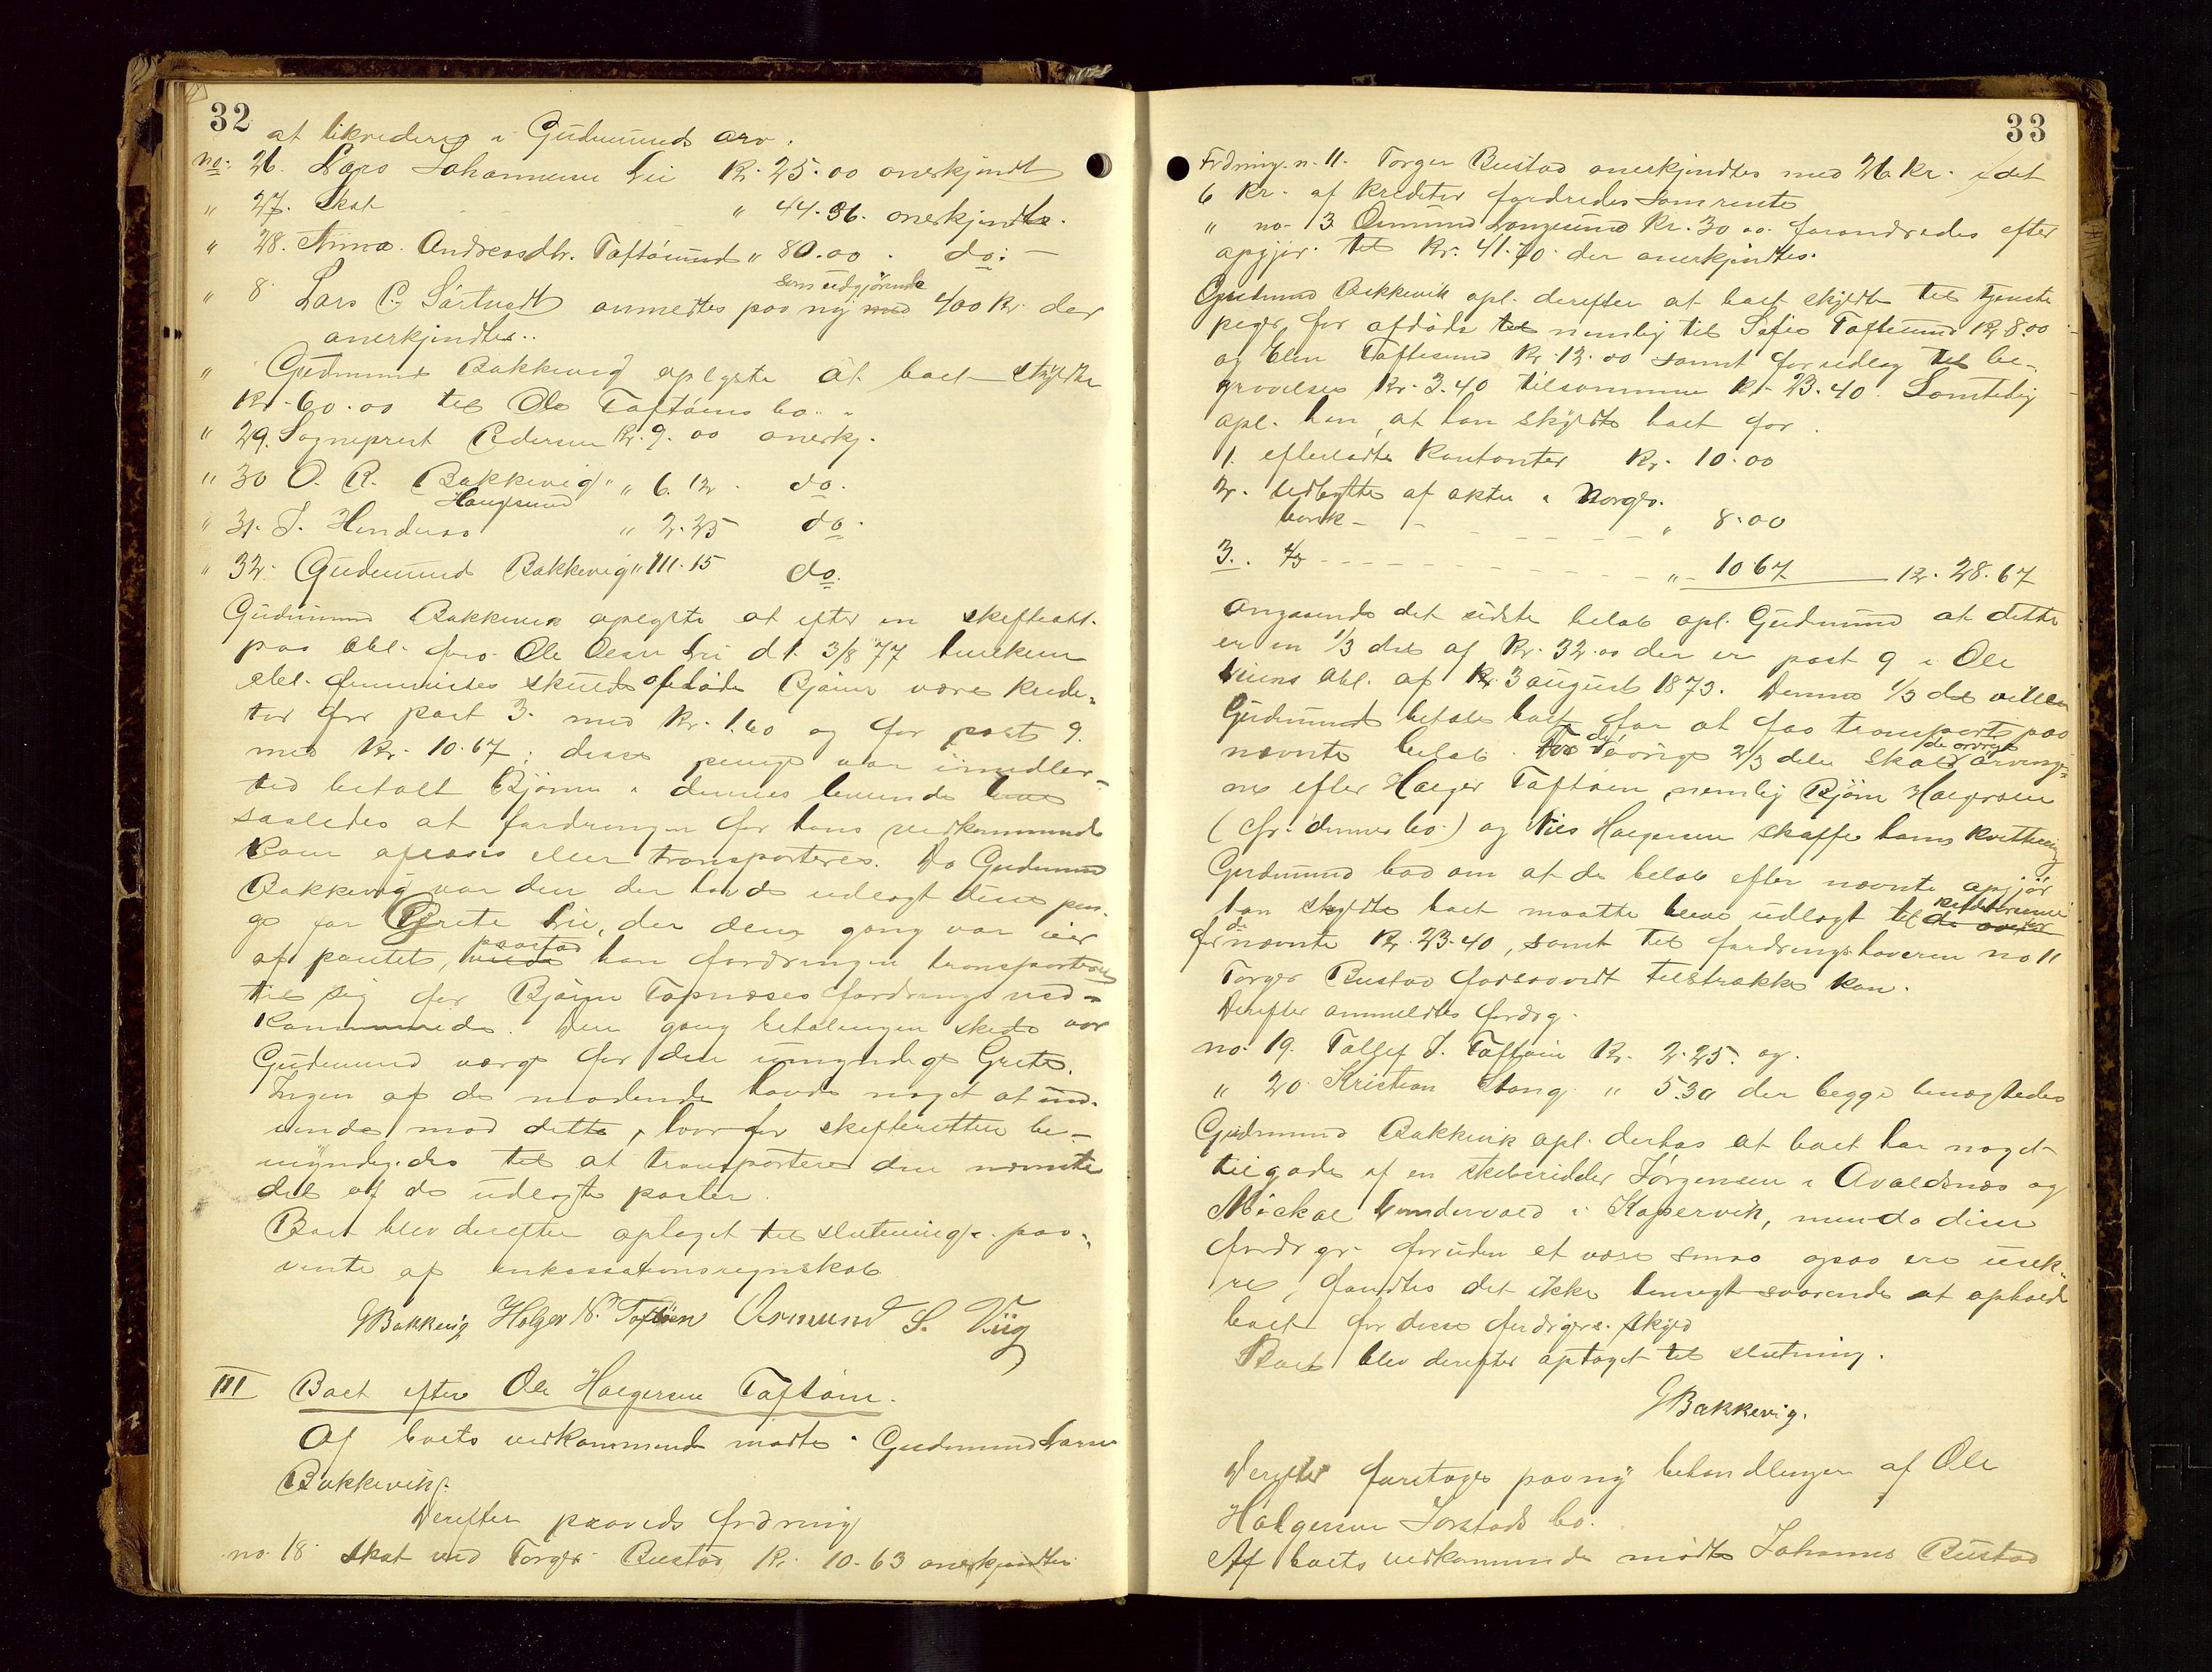 32
at likvideres i Gudmunds arv.
no. 26. Lars Johannesen Lie Kr. 25.00 anerkjendt
" 27. Skat " 44.36. anerkjendtes.
" 28. Anna Andreasdtr. Toftøsund " 80.00. do. —
som udgjørende
" 8. Lars C. Sørtvedt anmeldtes paa ny med 400 Kr. der
anerkjendtes..
" Gudmund Bakkevig oplyste at boet skyldte
Kr. 60.00 til Ole Toftøens bo..
" 29. Sogneprest Pedersen Kr. 9.00 anerkj.
" 30 O. R. Bakkevig " 6.12. do.
Haugesund
" 31. T. Hendersø " 2.25 do.
" 32. Gudmund Bakkevig " 111.15 do.
Gudmund Bakkevik oplyste at efter en skifteatt.
paa obl. fra Ole Olsen Lie dt. 3/8 77
skulde afdøde Bjørn være kredi-
tor for post 3. med Kr. 1.60 og for post 9.
med Kr. 10.67; disse penge var imidler-
tid betalt Bjørn i dennes levende live
saaledes at fordringen for hans vedkommende
kan aflæses eller transporteres. Da Gudmund
Bakkevig var den der havde udlagt disse pen-
ge for Grete Lie, der den gang var eier
paastod
af pantet, vilde han fordringen transporteres
til sig for Bjørn Topnæses fordrings ved-
kommende. Den gang betalingen skede var
Gudmund værge for den umyndige Grete.
Ingen af de mødende havde noget at ind-
vende mod dette, hvorfor skifteretten be-
myndigedes til at transportere den nævnte
del af de udlagte poster.
Boet blev derefter optaget til slutning i paa-
vente af inkassationsregnskab
GBakkevig Holger N. Toftøen Osmund S. Viig
III Boet efter Ole Holgersen Toftøen.
Af boets vedkommende mødte: Gudmund Larsen
Bakkevik.
Derefter prøvedes fordring
no. 18. Skat ved Torger Bustad Kr. 10.63 anerkjendtes
33
Fordring n. 11. Torger Bustad anerkjendtes med 26 Kr. idet
6 Kr. af kreditor fordredes som rente
" no. 3 Osmund Longesund Kr. 30.00. forandredes efter
opgjør til Kr. 41.70 der anerkjendtes.
Gudmund Bakkevik opl. derefter at boet skyldte til tjeneste
piger for afdøde til nemlig til Sofie Toftesund Kr 8.00
og Elen Toftesund Kr. 12.00 samt for udlæg til be-
gravelses Kr. 3.40 tilsammen Kr. 23.40. Samtidig
opl. han, at han skyldte boet for.
1. efterladte kontanter Kr. 10.00
2. Udbytte af aktie i Norges.
bank - - - - - " 8.00
3. 1/3 - - - - - " 10 67 — Kr. 28.67
Angaaende det sidste beløb opl. Gudmund at dette
er en 1/3 del af Kr. 32.00 der er post 9 i Ole
Liens obl. af 3 august 1873. Denne 1/3 del vilde
Gudmund betale boet for at faa transport paa
nævnte beløb. For de øvrige 2/3 dele skal de øvrige arvinge-
ne efter Holger Toftøen, nemlig Bjørn Holgersen
(cfr. dennes bo.) og Nils Holgersen skaffe ham kvittering
Gudmund bad om at de beløb efter nævnte opgjør
han skyldte boet maatte blive udlagt til kreditorerne
for de nævnte Kr. 23.40, samt til fordringshaveren no 11
Torger Bustad forsaavidt tilstrække kan.
Derefter anmeldtes fordrg.
no. 19. Tollef J. Toftøen Kr. 2.25. og.
" 20. Kristian Stang " 5.30 der begge benægtedes
Gudmund Bakkevik opl. derhos at boet har noget
tilgode af en skibsrheder Jørgensen i Avaldsnæs og
Mickal Vindervold i Kopervik, men da disse
fordrgr. foruden at være smaa ogsaa ere usik-
re, fandtes det ikke hensigtssvarende at opholde
boet for disse fordrgers. skyld
Boet blev derefter optaget til slutning.
GBakkevig.
Derefter foretages paany behandlingen af Ole
Holgersen Sørstads bo.
Af boets vedkommende mødte Johannes Bustad